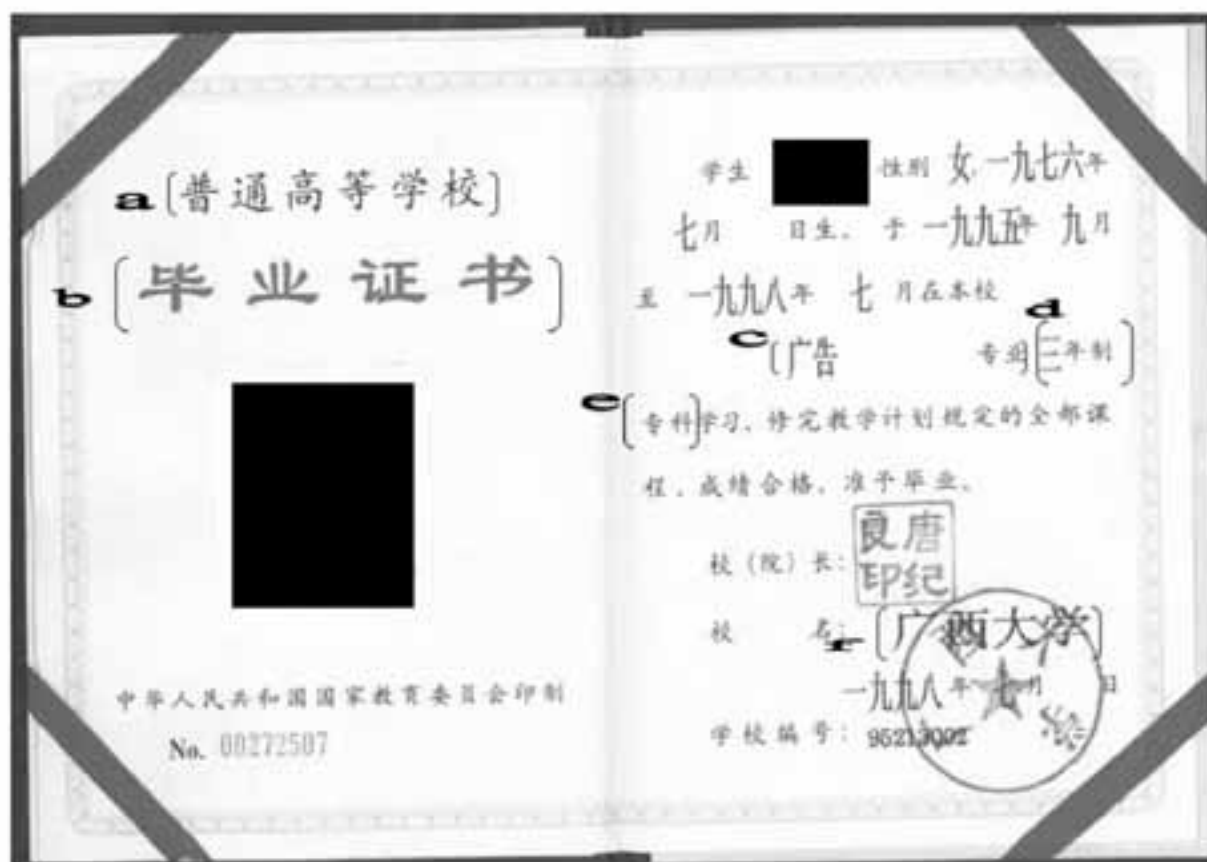 a [普通高等学校]
b [毕业证书]
中华人民共和国国家教育委员会印制
No. 00272507
学生 性别 女, 一九七六年
七月 日生、于一九九五年 九月
至 一九九八年 七月在本校 d
c [广告 专业[三年制]
e [专科]学习、修完教学计划规定的全部课
程、成绩合格、准予毕业、
校(院)长: 唐纪良印
校 名: f [广西大学]
一九九八年 七月 日
学校编号: 95213002